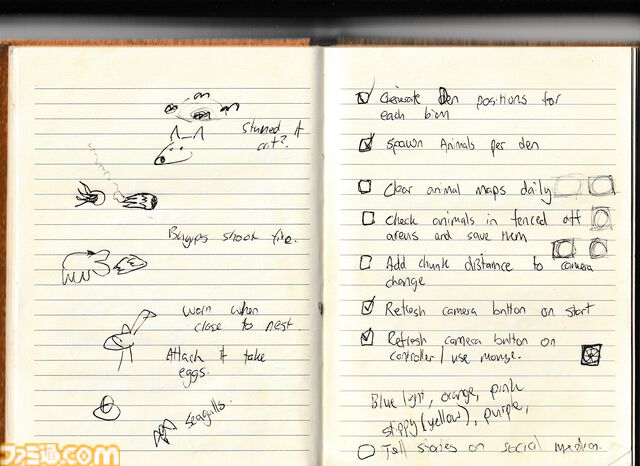 Stunned if
cut?
Bunyips shoot fire.
Warn when
close to nest.
Attack if take
eggs.
Seagulls.
Generate Den positions for
each biom
Spawn Animals per den
Clear animal maps daily
Check animals in fenced off
areas and save them
Add chunk distance to camera
change
Refresh camera button on start
Refresh camera button on
controller / use mouse.
Blue light, orange, pink
(yellow), purple,
Tell stories on social
ファミ通.com